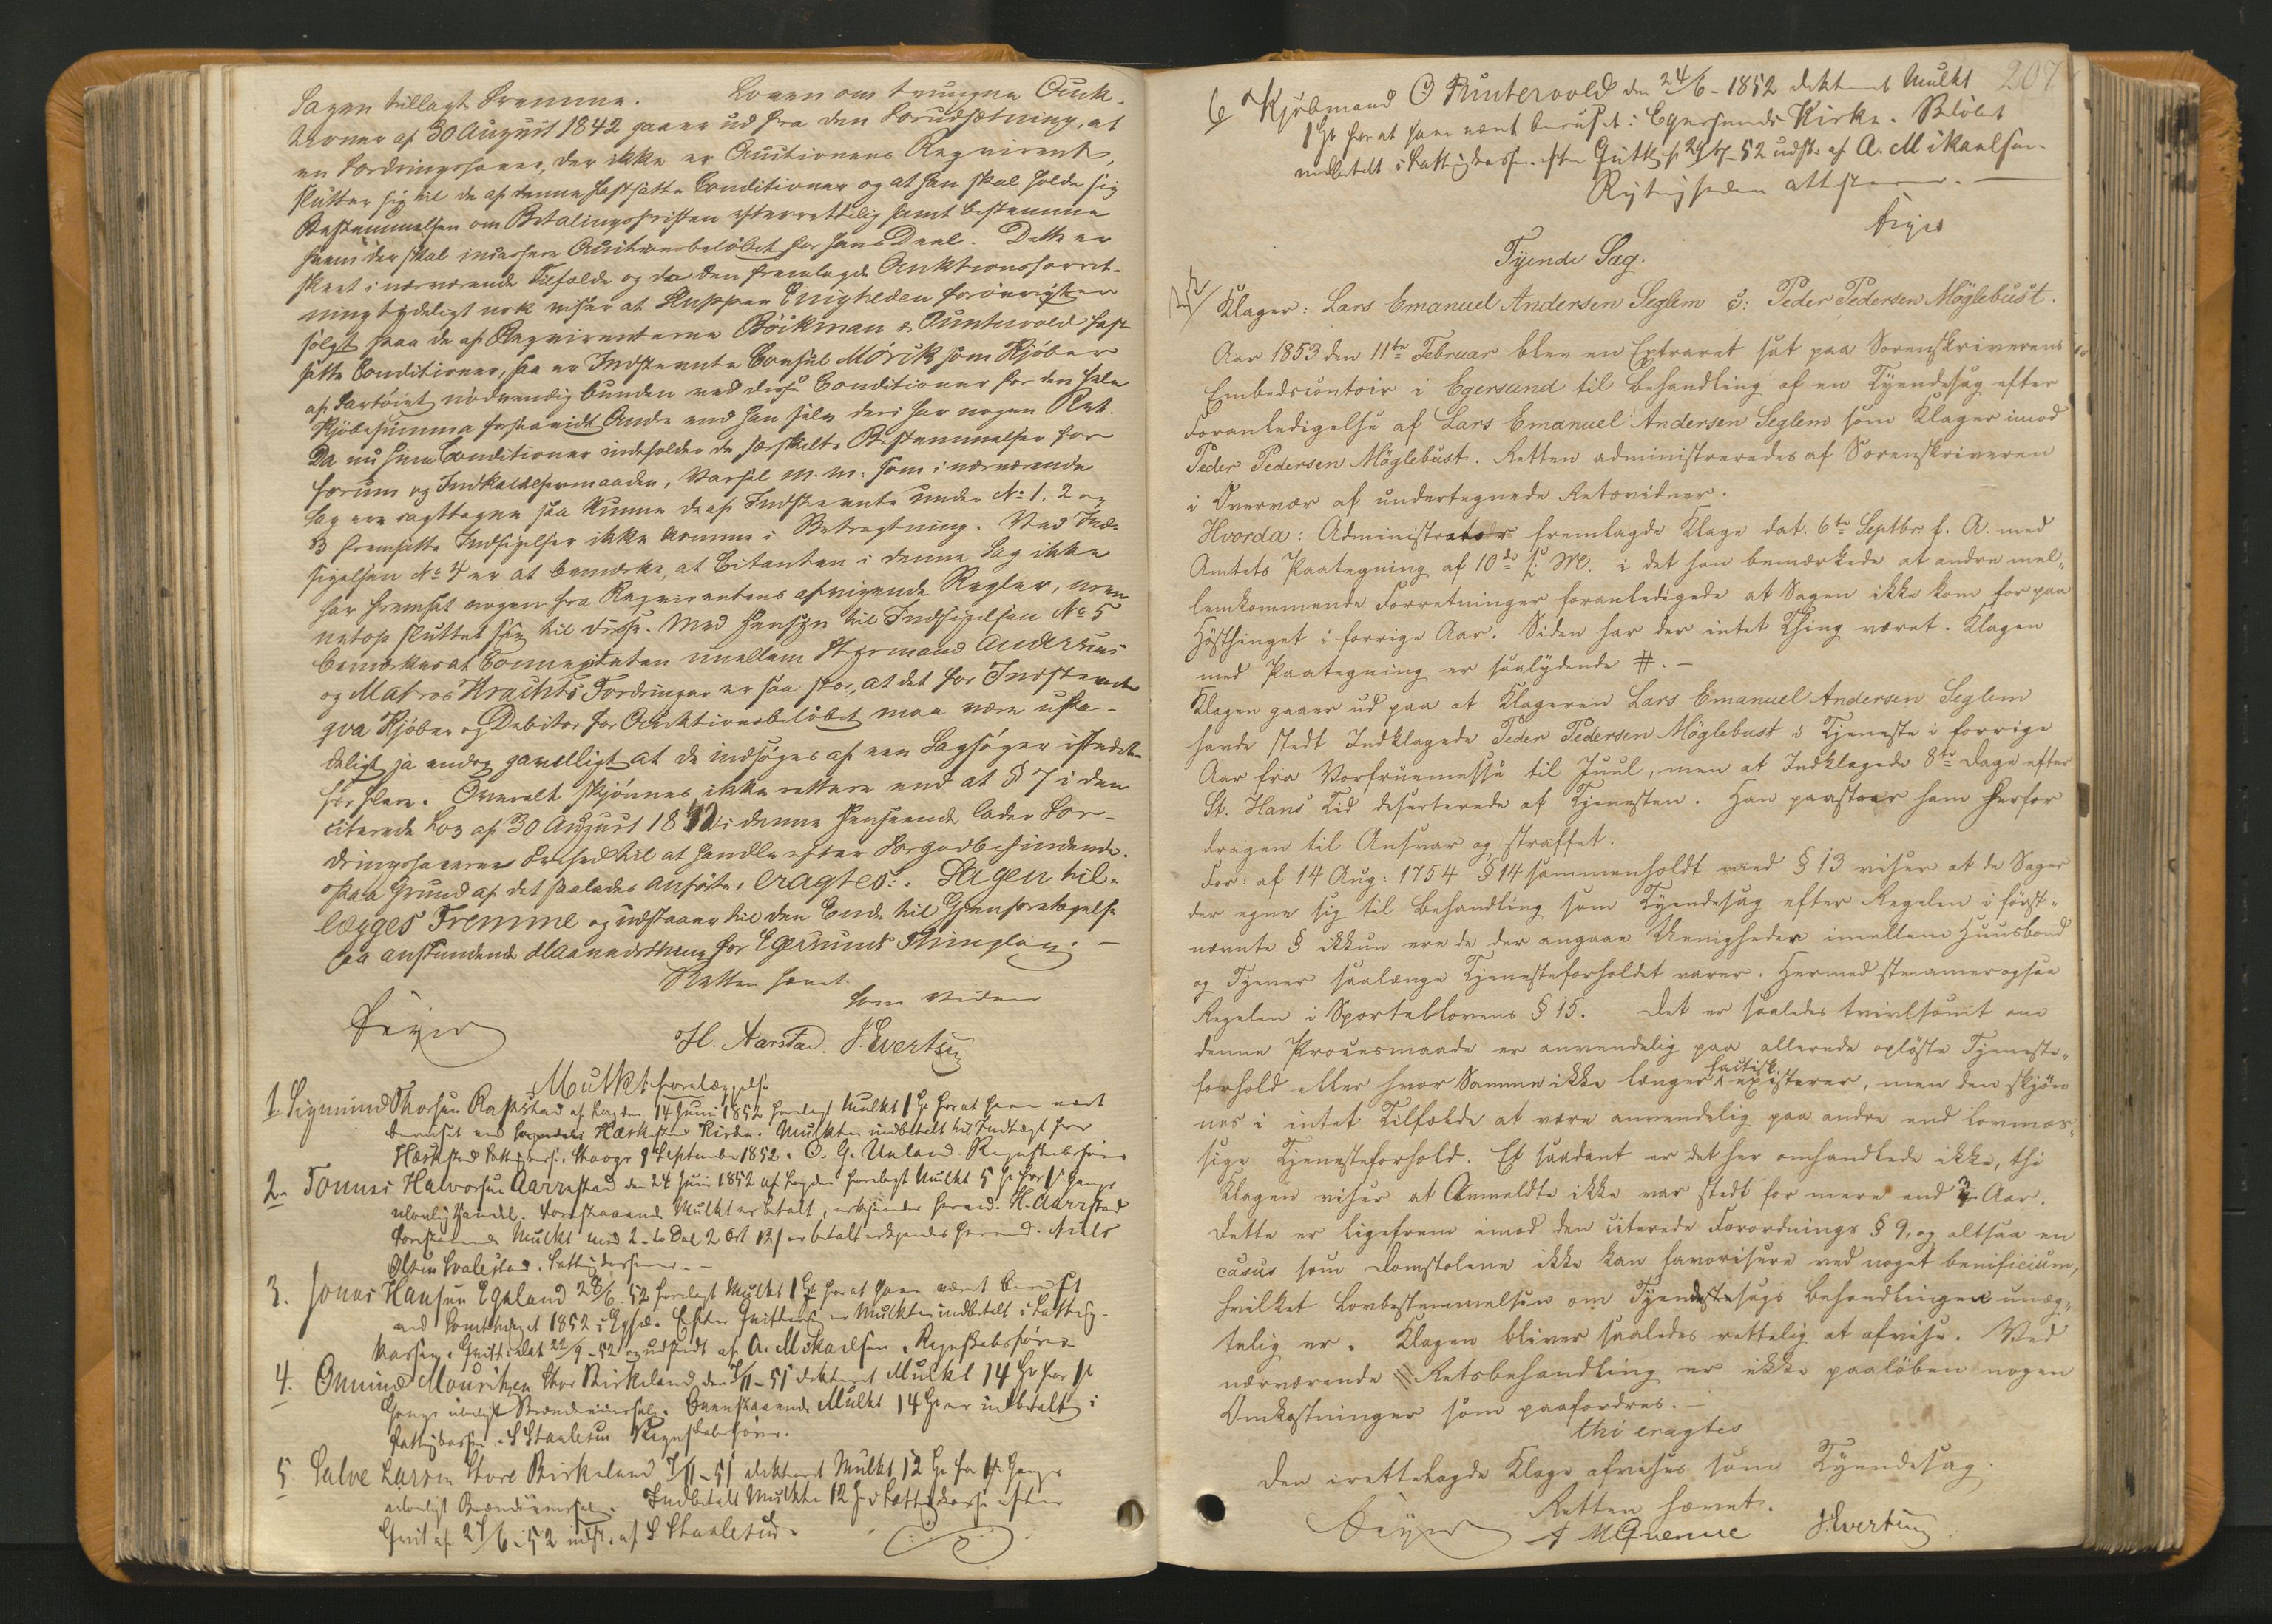 Sagen tillagt Fremme. Loven om tvungne Auk-
tioner af 30 August 1842 gaaer ud fra den Forudsætning, at
en Fordringshaver, der ikke er Auctionens Reqvirent,
slutter sig til de af denne fastsatte Conditioner og at han skal holde sig
Bestemmelsen om Betalingsfristen efterrettelig samt bestemme
hvem der skal incassere Auctionsbeløbet for hans Deel. Dette er
skeet i nærværende Tilfælde og da den fremlagde Auktionsforret-
ning tydeligt nok viser at Skuppen Enigheden forøvrigt er
solgt paa de af Reqvirenterne Böikman & Puntervold fast-
satte Conditioner, saa er Indstevnte Consul Mörck som Kjøber
af Fartöiet nødvendig bunden ved disse Conditioner for den hele
Kjøbesumma forsaavidt Andre end han selv deri har nogen Ret.
Da nu hine Conditioner indeholder de særskilte Bestemmelser for
Forum og Indkaldelsesmaaden, Varsel m. m. som i nærværende
Sag ere iagttagne saa kunne de af Indstevnte under No 1, 2 og
3 fremsatte Indsigelser ikke komme i Betragtning. Ved Ind-
sigelsen No 4 er at bemærke, at Citanten i denne Sag ikke
har fremsat nogen fra Reqvirentens afvigende Regler, men
netop sluttet sig til disse. Med Hensyn til Indsigelsen No 5
bemærkes at Connexiteten imellem Styrmand Andersens
og Matros Krachts Fordringer er saa stor, at det for Indstevnte
qva Kjøber og Debitor for Auktionsbeløbet maa være uska-
deligt ja endog gavnligt at de indsøges af een Sagsøger istedet-
for flere. Overalt skjønnes ikke rettere end at § 7 i den
citerede Lov af 30 August 1842 i denne Henseende lader For-
dringshaverne Frihed til at handle efter Forgodtbefindende.
Paa Grund af det saaledes anførte, eragtes: Sagen til-
lægges Fremme og udstaaer til den Ende til Gjenforetagelse
paa anstundende Maanedsthing for Egersunds Thinglag. —
Retten hævet.
Feyer
Som Vidner
H. Aarstad. J. Evertsen
Mulktforelæggelse
1. Sigmund Thorsen Rapstad af Hægden 14 Juni 1852 forelagt Mulkt 1 Sp for at have været
beruset ved Hæskestad Kirke. Mulkten indbetalt til Indtægt for
Hæskestad Fattigvæsen. Skaar 9 September 1852. O. G. Ueland. Regnskabsfører
2. Tønnes Halvorsen Aarrestad den 24 Juni 1852 forelagt Mulkt 5 Sp for 1ste Gangs
ulovlig Handel. Forestaaende Mulkt er betalt, erkjendes herved. H. Aarrestad
Forestaaende Mulkt med 2 Spd 2 Ort 12 s er betalt erkjendes herved. Niels
Olsen Svalestad. Fattigkasserer. —
3. Jonas Hansen Egeland 28/6 52 forelagt Mulkt 1 Sp for at have været beruset
ved Sommthinget 1852 i Egersd. Efter Qvittering er Mulkten indbetalt i Fattig-
kassen. Qvitt. dat 22/9-52 er udstedt af A. Mikaelsen. Regnskabsfører
4. Omund Mouritzen Store Birkeland den 7/11-51 dikteret Mulkt 14 Sp for 1ste
Gangs ulovligt Brændeviinssalg. Ovenstaaende Mulkt 14 Sp er indbetalt i
Fattigkassen. S Stalesen Regnskabsfører.
5 Salve Larsen Store Birkeland 7/11-51 dikteret Mulkt 12 Sp for 1ste Gangs
ulovligt Brændeviinssalg. Indbetalt Mulkten 12 Sp i Fattigkassen efter
Qvit. af 24/6-52 udst. af S Stalesen.
207
6 Kjøbmand O Puntervold den 24/6-1852 dikteret Mulkt
1 Sp for at have været beruset i Egersunds Kirke. Beløbet
indbetalt i Fattigkassen efter Qvitt. af 29/7-52 udst. af A. Mikaelsen
Rigtigheden attesteres. —
Feyer
Tyende Sag.
Klager: Lars Emanuel Andersen Seglem c: Peder Pedersen Möglebust.
Aar 1853 den 11te Februar blev en Extraret sat paa Sorenskriverens
Embedscontoir i Egersund til Behandling af en Tyendesag efter
Foranledigelse af Lars Emanuel Andersen Seglem som Klager imod
Peder Pedersen Möglebust. Retten administreredes af Sorenskriveren
i Overvær af undertegnede Retsvidner.
Hvorda: Administrator fremlagde Klage dat. 6te Septbr. f. A. med
Amtets Paategning af 10de s. M. i det han bemærkede at andre mel„
lemkommende Forretninger foranledigede at Sagen ikke kom for paa
Høstthinget i forrige Aar. Siden har der intet Thing været. Klagen
med Paategning er saalydende #. —
Klagen gaaer ud paa at Klageren Lars Emanuel Andersen Seglem
havde stedt Indklagede Peder Pedersen Möglebust i Tjeneste i forrige
Aar fra Vorfruemesse til Juul, men at Indklagede 8te Dage efter
St. Hans Tid deserterede af Tjenesten. Han paastaaer ham herfor
dragen til Ansvar og straffet.
For: af 14 Aug: 1754 § 14 sammenholdt med § 13 viser at de Sager
der egne sig til Behandling som Tyendesag efter Regelen i først„
nævnte § ikkun ere de der angaae Uenigheder imellem Huusbond
og Tjener saalænge Tjenesteforholdet varer. Hermed stemmer ogsaa
Regelen i Sportellovens § 15. Det er saaledes tvivlsomt om
denne Procesmaade er anvendelig paa allerede opløste Tjeneste„
forhold eller hvor Samme ikke længer factisk existerer, men den skjøn
nes i intet Tilfælde at være anvendelig paa andre end lovmæs„
sige Tjenesteforhold. Et saadant er det her omhandlede ikke, thi
Klagen viser at Anmeldte ikke var stedt for mere end ½ Aar.
Dette er ligefrem imod den citerede Forordnings § 9, og altsaa en
casus som Domstolene ikke kan favorisere ved noget benificium,
hvilket Lovbestemmelsen om Tyendesags Behandlingen unæg„
telig er. Klagen bliver saaledes rettelig at afvise. Ved
nærværende Retsbehandling er ikke paaløben nogen
Omkostninger som paafordres. —
thi eragtes
Den irettelagde Klage afvises som Tyendesag.
Retten hævet.
Feyer A M Qvenne J. Evertsen.